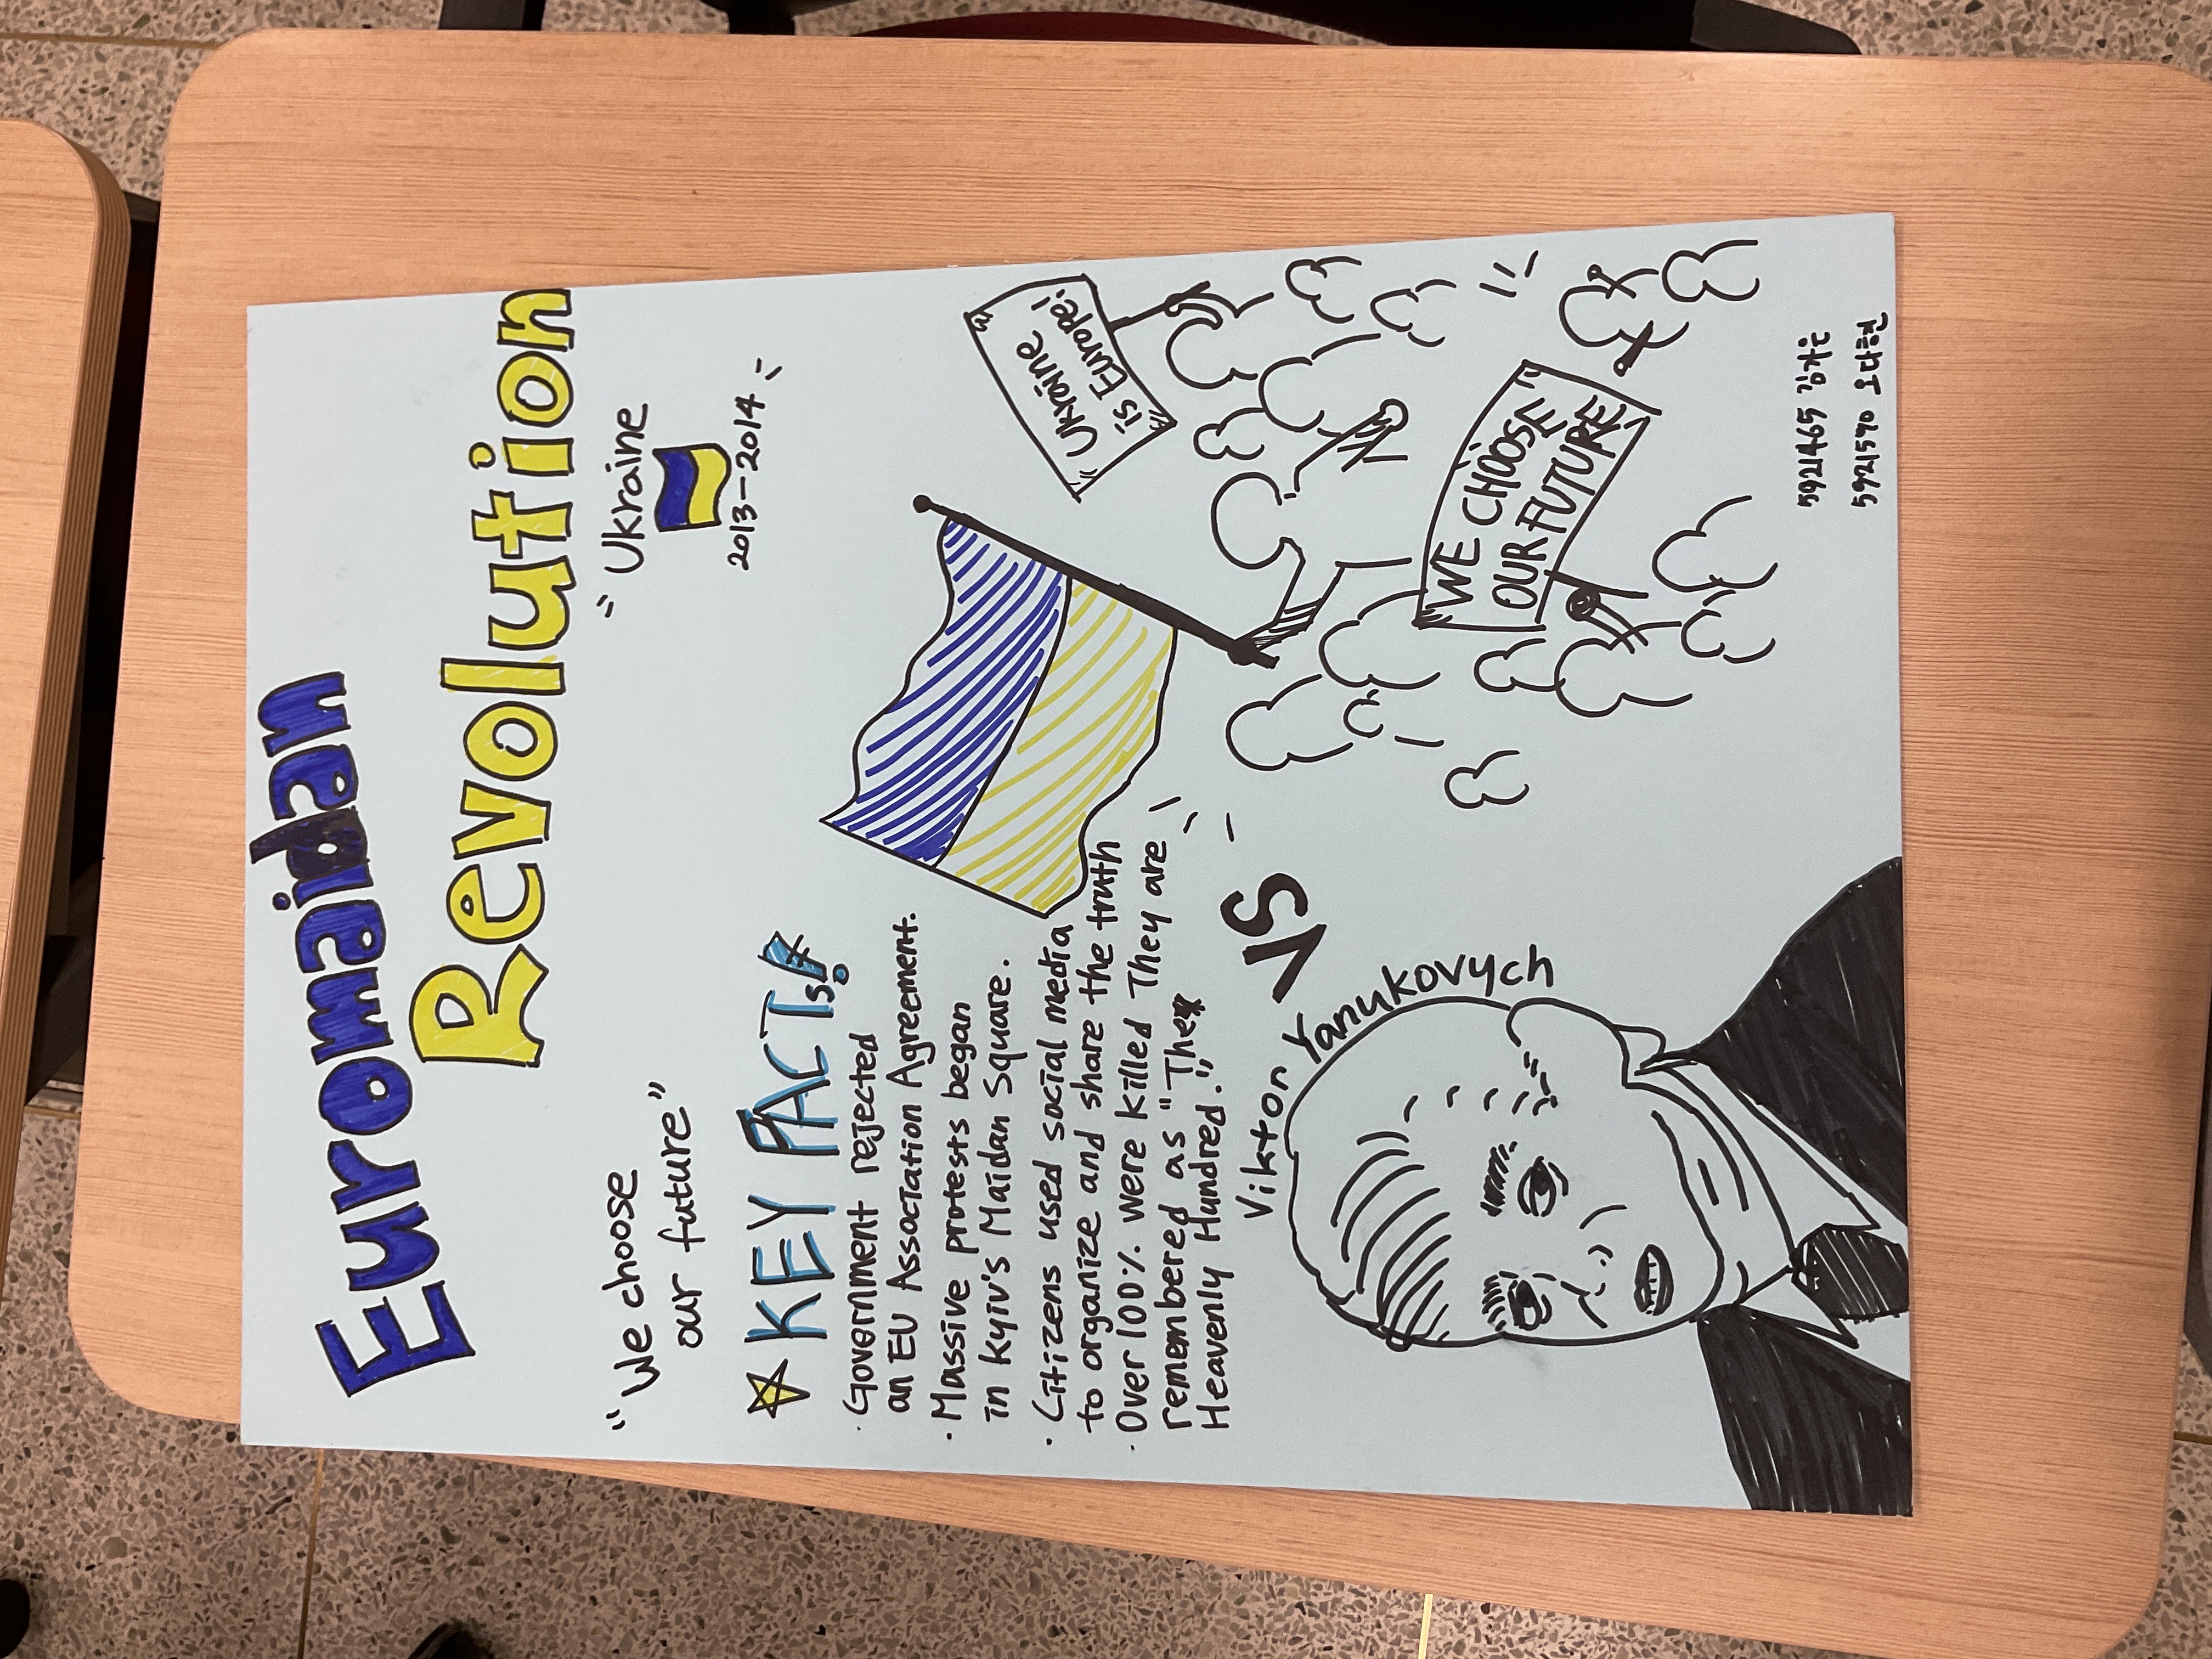 Euromaidan
Revolution
"Ukraine
2013-2014"
"We choose
our future"
KEY FACTs!
· Government rejected
an EU Association Agreement.
· Massive protests began
in Kyiv's Maidan Square.
· Citizens used social media
to organize and share the truth
· Over 100% were killed They are
remembered as "The
Heavenly Hundred."
Ukraine
is Europe!
WE CHOOSE
OUR FUTURE
VS
Vikton Yanukovych
5921465 김가은
5921590 오다현